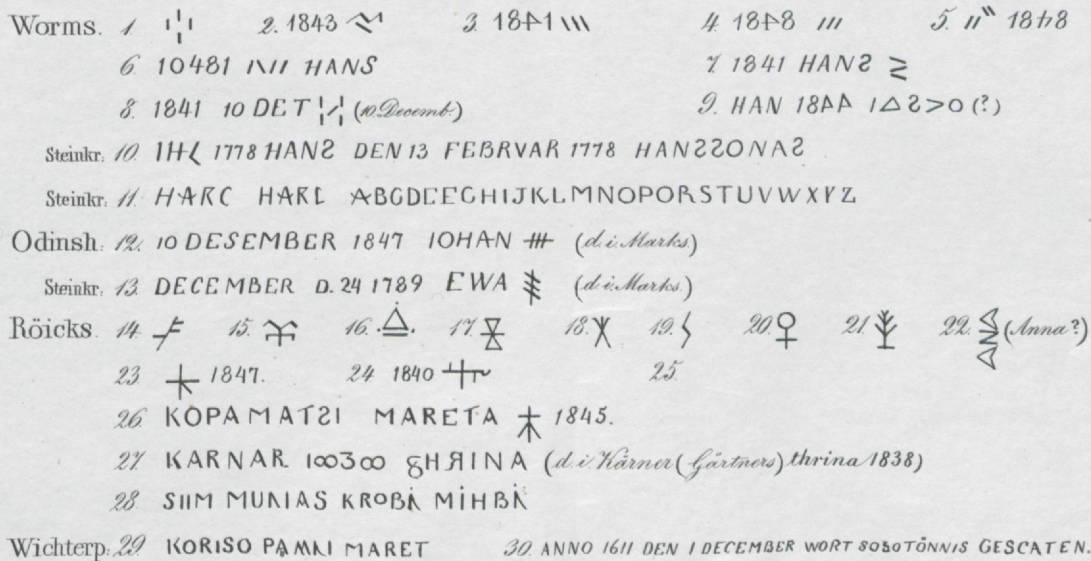 Worms. 1. 2. 1843 3. 1841 \\\ 4. 1848 /// 5. 1848
6. 10481 I\II HANS 7. 1841 HANS ≥
8. 1841 10 DET (10. Decemb.) 9. HAN 1844 1ΔS>O (?)
Steinkr. 10. 1778 HANS DEN 13 FEBRVAR 1778 HANSSONAS
Steinkr. 11. HARC HARL ABCDEEGHIJKLMNOPORSTUVWXYZ
Odinsh. 12. 10 DESEMBER 1847 IOHAN (d. i. Marks.)
Steinkr. 13. DECEMBER D. 24 1789 EWA (d. i. Marks.)
Röicks. 14. 15. 16. 17. 18. 19. 20. ♀ 21. 22. (Anna?)
23 1847. 24 1840 25.
26. KOPA MATSI MARETA 1845.
27. KARNAR 1∞3∞ (d. i. Kärner (Gärtners) thrina 1838)
28. SIIM MUNIAS
Wichterp. 29 KORISO MARET 30. ANNO 1611 DEN 1 DECEMBER WORT SOSOTÖNNIS GESCATEN.